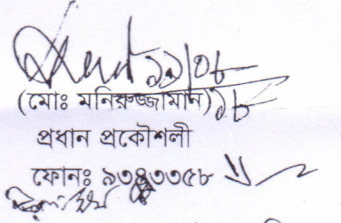 ১১/০৮
(মোঃ মনিরুজ্জামান)
প্রধান প্রকৌশলী
ফোনঃ ৯৩৪৩৩৫৮